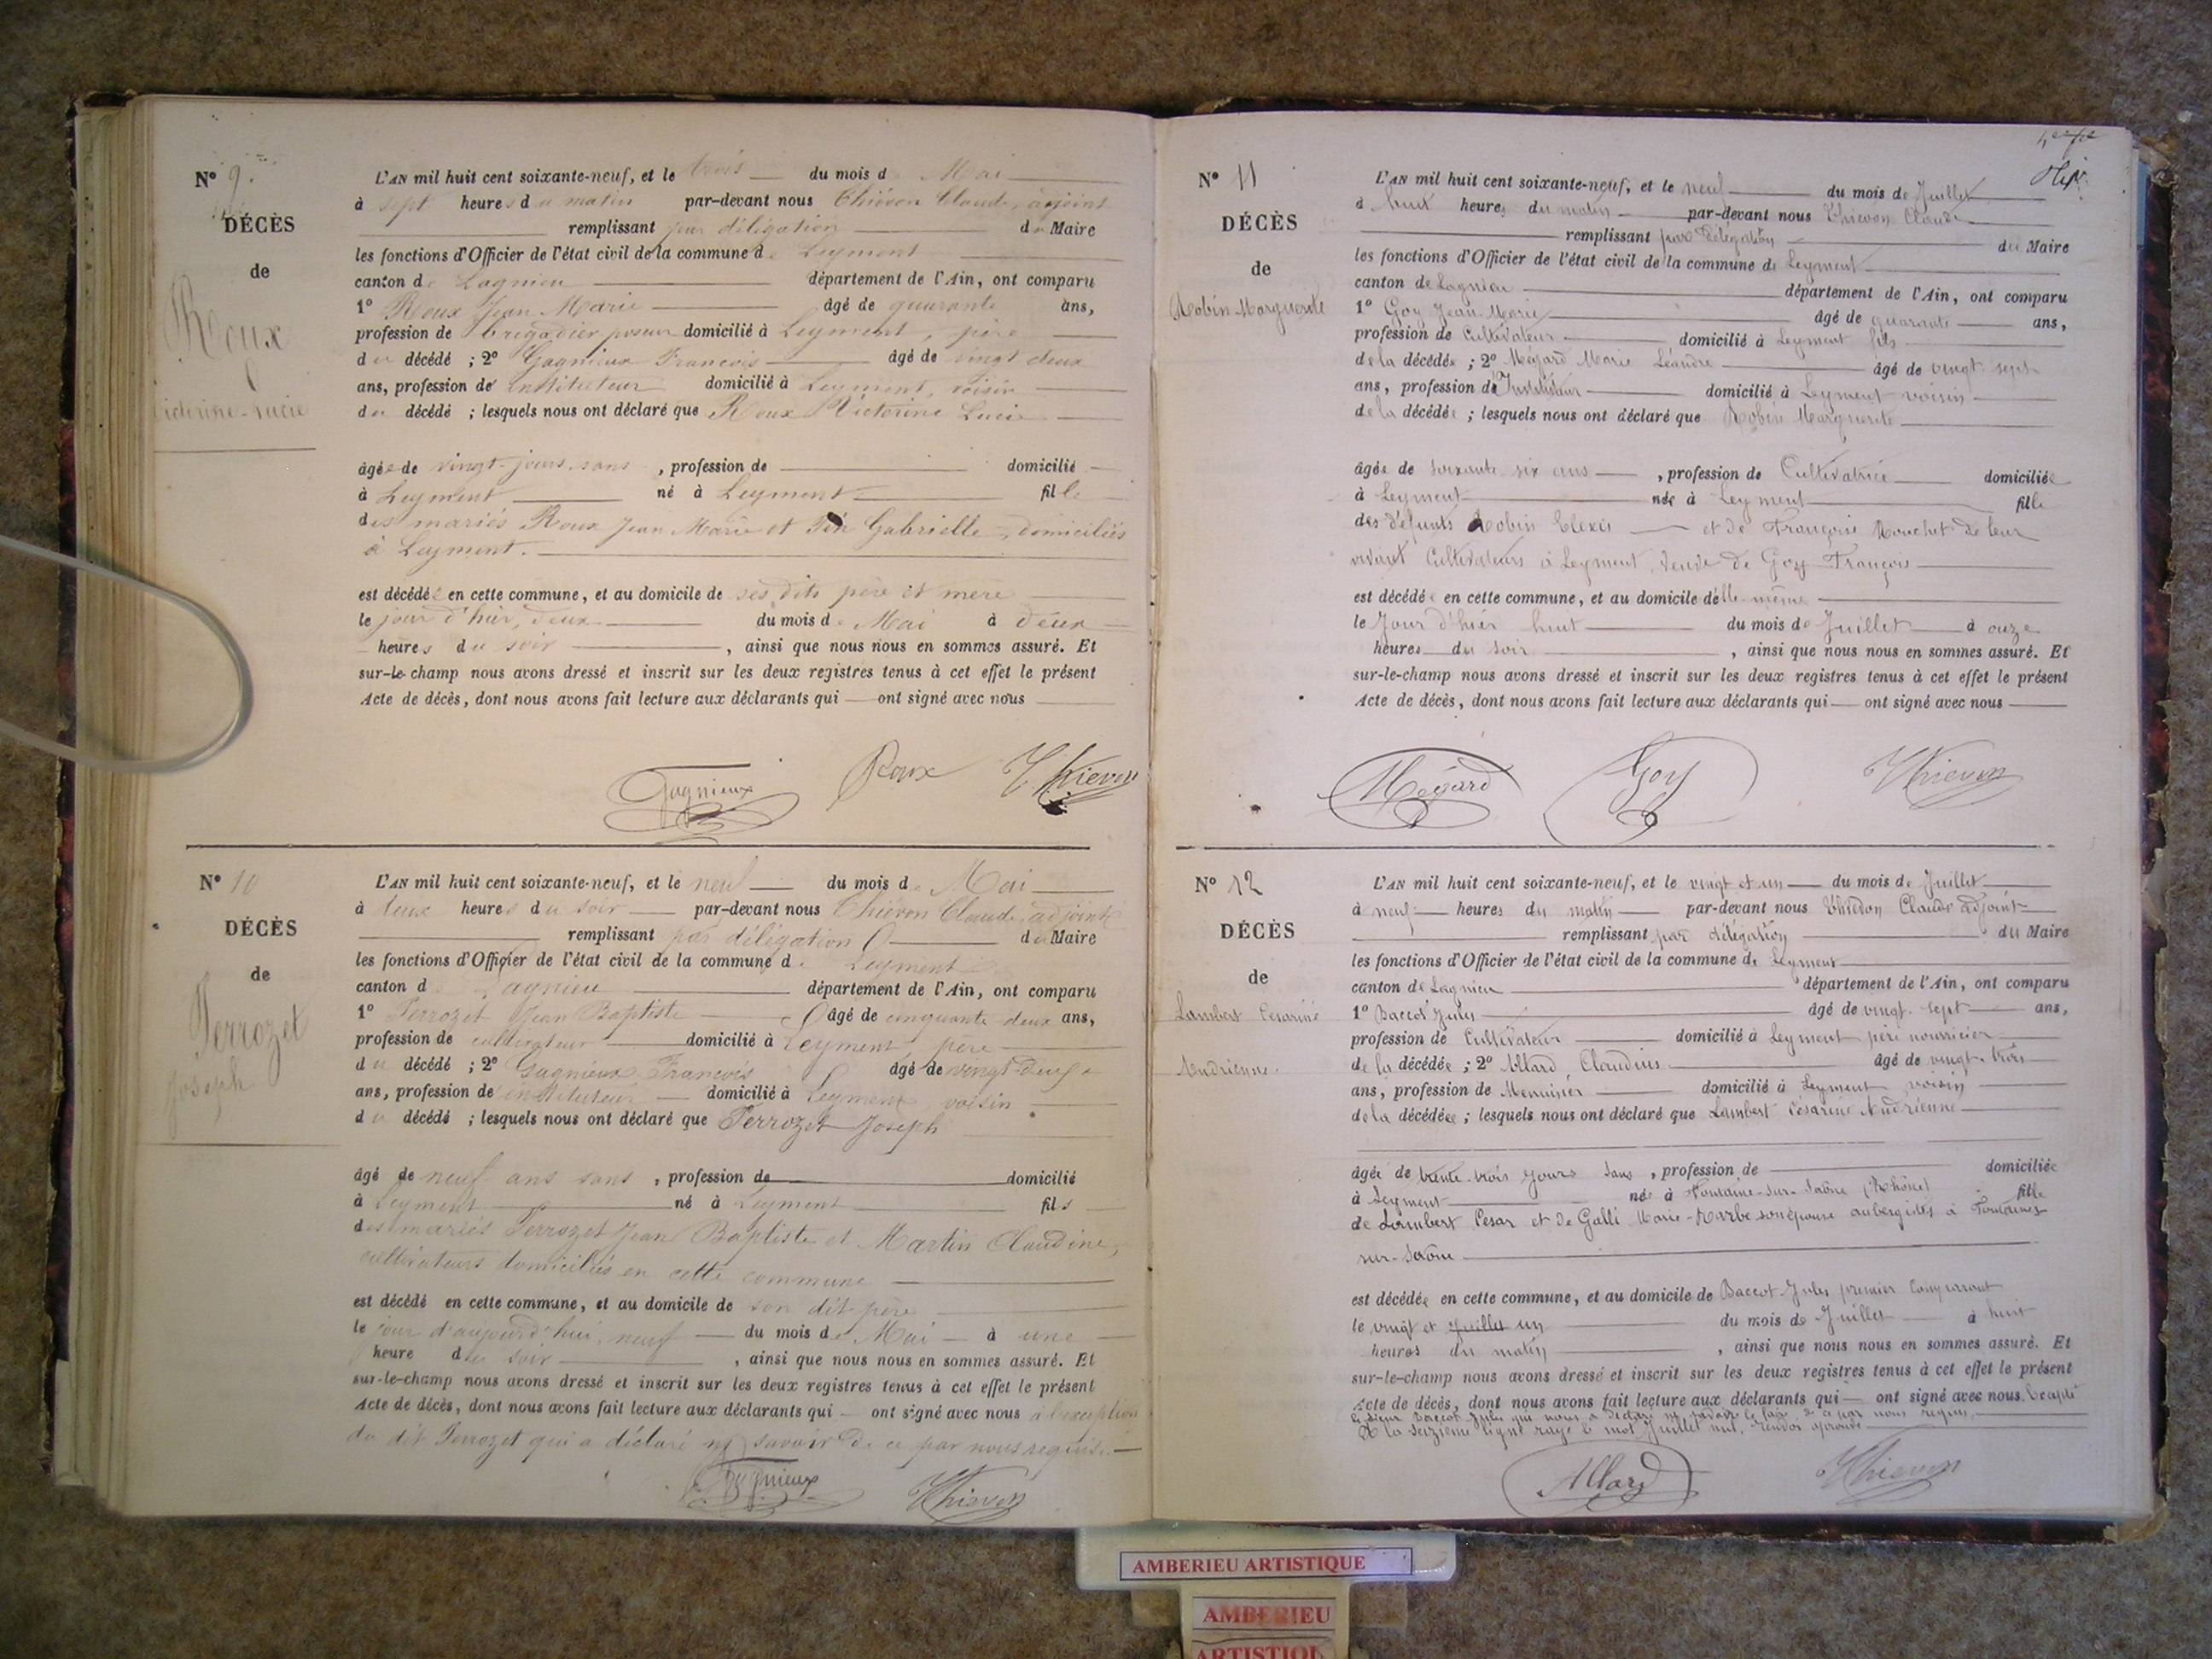 N° 9.
DÉCÈS
de
Roux
Victorine-Lucie
L'AN mil huit cent soixante-neuf, et le trois du mois de Mai
à sept heures du matin par-devant nous Thiévon Claude, adjoint
remplissant par délégation du Maire
les fonctions d'Officier de l'état civil de la commune de Leyment
canton de Lagnieu département de l'Ain, ont comparu
1° Roux Jean Marie âgé de quarante ans,
profession de brigadier poseur domicilié à Leyment, père
du décédé ; 2° Gagnieux François âgé de vingt deux
ans, profession de instituteur domicilié à Leyment, voisin
du décédé ; lesquels nous ont déclaré que Roux Victorine Lucie
âgée de vingt-jours, sans , profession de domicilié
à Leyment né à Leyment fille
des mariés Roux Jean Marie et Gabrielle, domiciliés
à Leyment.
est décédée en cette commune, et au domicile de ses dits père et mère
le jour d'hier, deux du mois de Mai à deux
heures du soir , ainsi que nous nous en sommes assuré. Et
sur-le-champ nous avons dressé et inscrit sur les deux registres tenus à cet effet le présent
Acte de décès, dont nous avons fait lecture aux déclarants qui ont signé avec nous
Gagnieux Roux Thievon
N° 10
DÉCÈS
de
Perrozet
Joseph
L'AN mil huit cent soixante-neuf, et le neuf du mois de Mai
à deux heures du soir par-devant nous Thiévon Claude, adjoint
remplissant par délégation du Maire
les fonctions d'Officier de l'état civil de la commune de Leyment
canton de Lagnieu département de l'Ain, ont comparu
1° Perrozet Jean Baptiste âgé de cinquante deux ans,
profession de cultivateur domicilié à Leyment, père
du décédé ; 2° Gagnieux François âgé de vingt-deux
ans, profession de instituteur domicilié à Leyment voisin
du décédé ; lesquels nous ont déclaré que Perrozet Joseph
âgé de neuf ans sans , profession de domicilié
à Leyment né à Leyment fils
des mariés Perrozet Jean Baptiste et Martin Claudine,
cultivateurs domiciliés en cette commune
est décédé en cette commune, et au domicile de son dit père
le jour d'aujourd'hui, neuf du mois de Mai à une
heure du soir , ainsi que nous nous en sommes assuré. Et
sur-le-champ nous avons dressé et inscrit sur les deux registres tenus à cet effet le présent
Acte de décès, dont nous avons fait lecture aux déclarants qui ont signé avec nous à l'exception
du dit Perrozet qui a déclaré ne savoir de ce par nous requis.
Gagnieux Thievon
N° 11
DÉCÈS
de
Robin Marguerite
L'AN mil huit cent soixante-neuf, et le neuf du mois de Juillet
à huit heures du matin par-devant nous Thievon Claude
remplissant par délégation du Maire
les fonctions d'Officier de l'état civil de la commune de Leyment
canton de Lagnieu département de l'Ain, ont comparu
1° Goy Jean-Marie âgé de quarante ans,
profession de Cultivateur domicilié à Leyment fils
de la décédée ; 2° Mégard Marie Léandre âgé de vingt-sept
ans, profession d'Instituteur domicilié à Leyment voisin
de la décédée ; lesquels nous ont déclaré que Robin Marguerite
âgée de soixante-six ans , profession de Cultivatrice domiciliée
à Leyment née à Leyment fille
des défunts Robin Elexis et de Françoise Bouchet de leur
vivant Cultivateurs à Leyment, veuve de Goy François
est décédée en cette commune, et au domicile d'elle-même
le Jour d'hier huit du mois de Juillet à onze
heures du soir , ainsi que nous nous en sommes assuré. Et
sur-le-champ nous avons dressé et inscrit sur les deux registres tenus à cet effet le présent
Acte de décès, dont nous avons fait lecture aux déclarants qui ont signé avec nous
Mégard Goy Thievon
N° 12
DÉCÈS
de
Lambert Césarine
Andrienne.
L'AN mil huit cent soixante-neuf, et le vingt et un du mois de Juillet
à neuf heures du matin par-devant nous Thievon Claude adjoint
remplissant par délégation du Maire
les fonctions d'Officier de l'état civil de la commune de Leyment
canton de Lagnieu département de l'Ain, ont comparu
1° Baccot Jules âgé de vingt-sept ans,
profession de Cultivateur domicilié à Leyment père nourricier
de la décédée ; 2° Allard, Claudius âgé de vingt-trois
ans, profession de Menuisier domicilié à Leyment voisin
de la décédée ; lesquels nous ont déclaré que Lambert Césarine Andrienne
âgée de trente-trois jours sans , profession de domiciliée
à Leyment née à Fontaine-sur-Saône (Rhône) fille
de Lambert César et de Galli Marie-Barbe son épouse aubergistes à Fontaines
sur-Saône
est décédée en cette commune, et au domicile de Baccot Jules premier comparant
le vingt et Juillet un du mois de Juillet à huit
heures du matin , ainsi que nous nous en sommes assuré. Et
sur-le-champ nous avons dressé et inscrit sur les deux registres tenus à cet effet le présent
Acte de décès, dont nous avons fait lecture aux déclarants qui ont signé avec nous. Excepté
le sieur Baccot Jules qui nous a déclaré ne savoir le faire de ce par nous requis.
A la seizième ligne rayé le mot Juillet nul. Renvoi aprouvé
Allard Thievon
AMBERIEU ARTISTIQUE
AMBERIEU
ARTISTIQUE